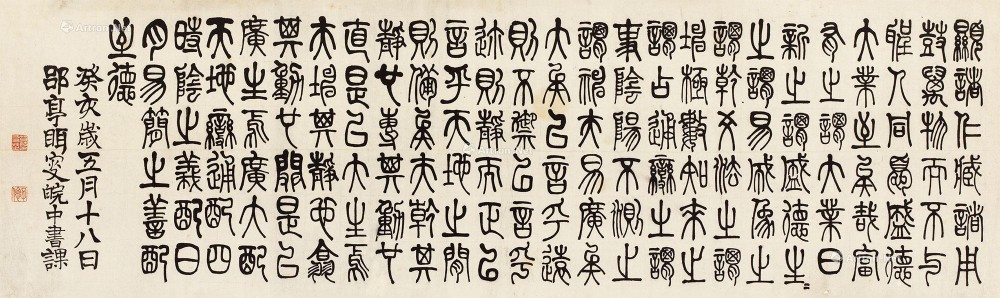 顯諸仁臧諸用
鼓萬物而不与
聖人同憂盛德
大業至矣哉富
有之謂大業日
新之謂盛德生=
之謂易成象之
謂乾爻法之謂
坤極數知來之
謂占通變之謂
事陰陽不測之
謂神夫易廣矣
大矣以言乎遠
則不禦以言乎
迩則靜而正以
言乎天地之間
則備矣夫乾其
靜也專其動也
直是以大生焉
夫坤其靜也翕
其動也闢是以
廣生焉廣大配
天地變通配四
時陰之義配日
月易簡之善配
至德
癸亥歲五月十八日
郘亭眲叟皖中書課